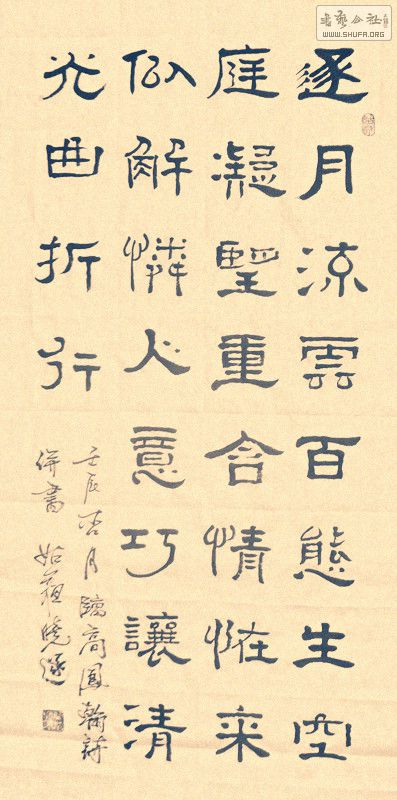 書藝公社
WWW.SHUFA.ORG
逐月流雲百態生空
庭凝望重含情怪来
似解憐人意巧讓清
光曲折行
壬辰杏月臨高鳳翰詩
併書